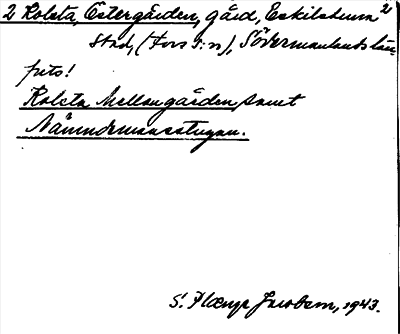 2 Rolsta, Östergården, gård, Eskilstuna 2
stad, (Fors s:n), Södermanlands län
foto!
Rolsta Mellangården samt
Nämndemansstugan.
S. Jacobson, 1943.